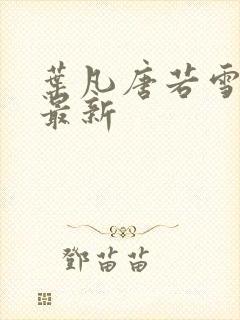 葉凡唐若雪
最新
鄧苗苗